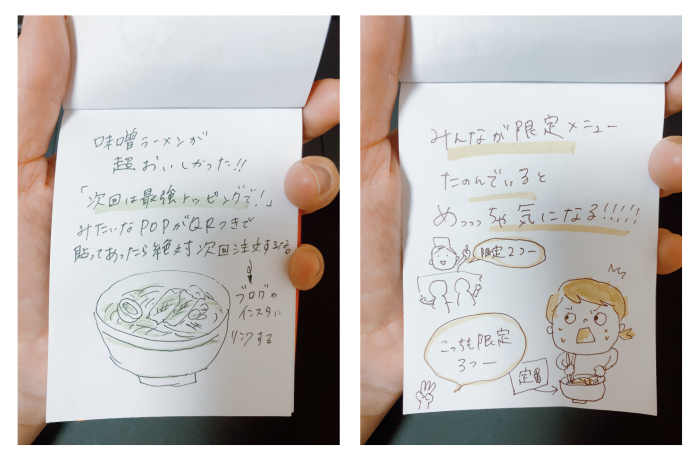 味噌ラーメンが
超おいしかった!!
「次回は最強トッピングで!」
みたいなPOPがQRつきで
貼ってあったら絶対次回注文するな
ブログや
インスタに
リンクする
みんなが限定メニュー
たのんでいると
めっっっちゃ気になる!!!!!
限定2つー
こっちも限定
3つー
定番